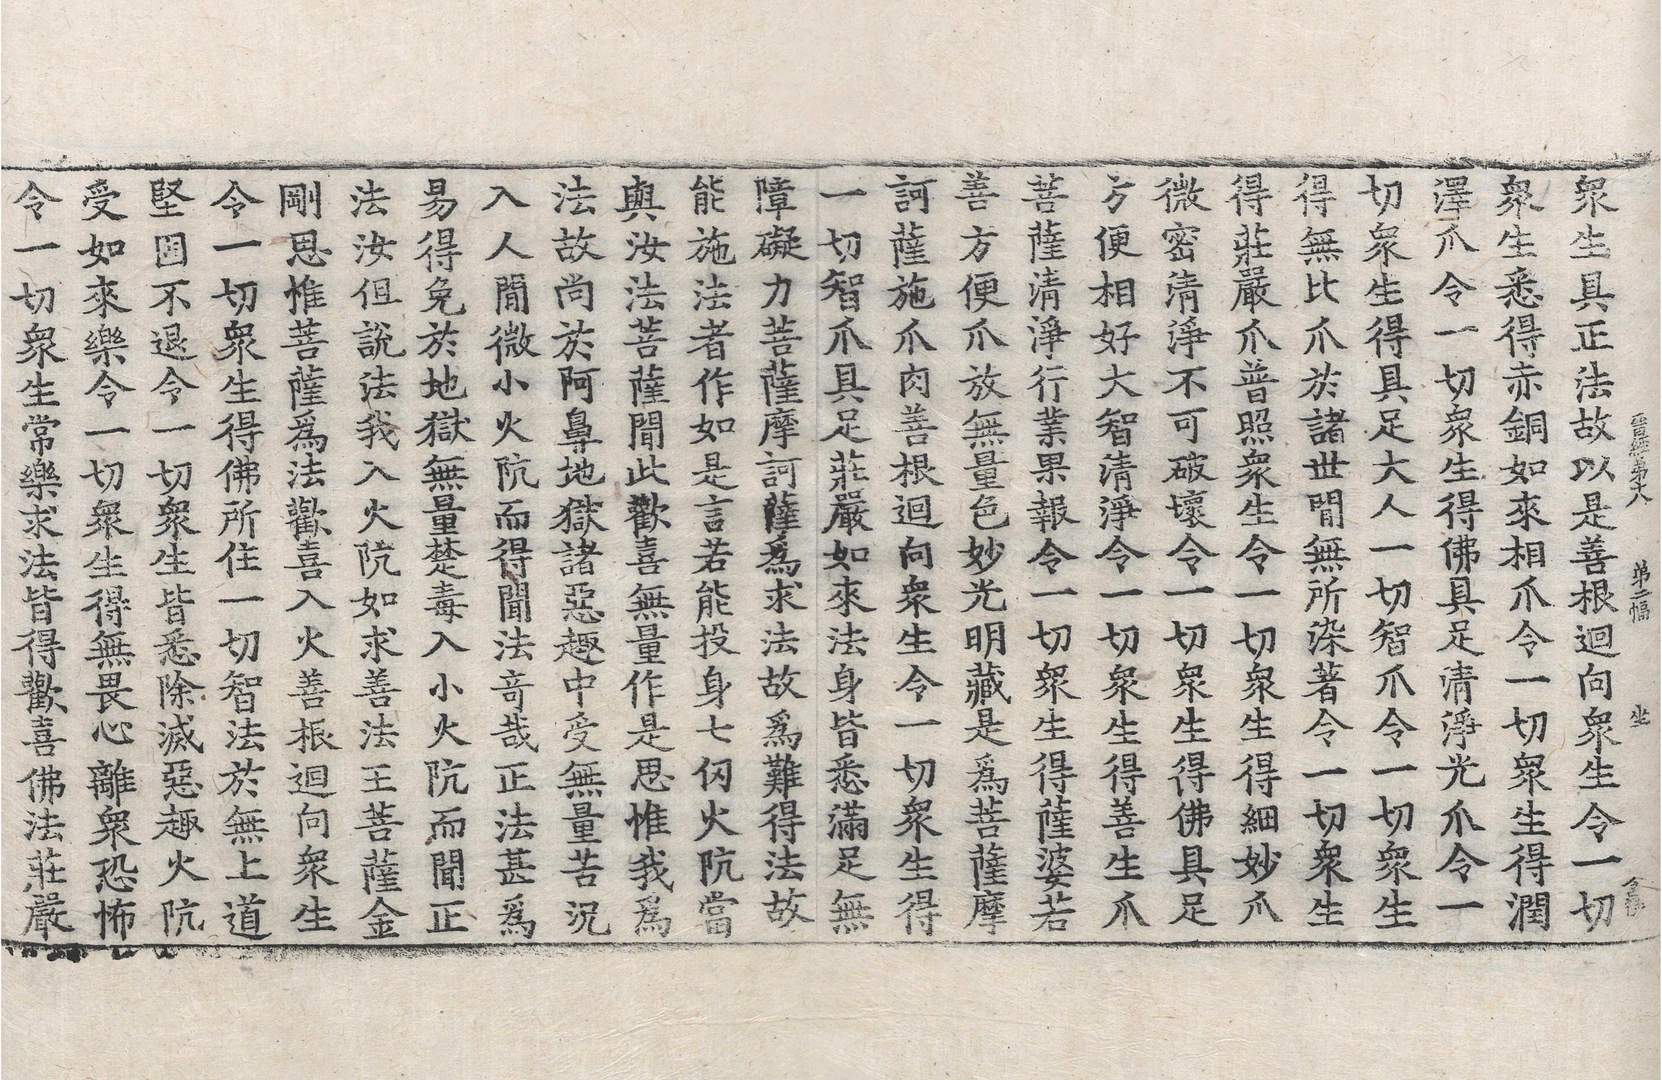 晋經第十八 第二幅 坐
衆生具正法故以是善根迴向衆生令一切
衆生悉得赤銅如來相爪令一切衆生得潤
澤爪令一切衆生得佛具足清淨光爪令一
切衆生得具足大人一切智爪令一切衆生
得無比爪於諸世間無所染著令一切衆生
得莊嚴爪普照衆生令一切衆生得細妙爪
微密清淨不可破壞令一切衆生得佛具足
方便相好大智清淨令一切衆生得善生爪
菩薩清淨行業果報令一切衆生得薩婆若
善方便爪放無量色妙光明藏是爲菩薩摩
訶薩施爪肉善根迴向衆生令一切衆生得
一切智爪具足莊嚴如來法身皆悉滿足無
障礙力菩薩摩訶薩爲求法故爲難得法故
能施法者作如是言若能投身七仞火阬當
與汝法菩薩聞此歡喜無量作是思惟我爲
法故尚於阿鼻地獄諸惡趣中受無量苦況
入人間微小火阬而得聞法奇哉正法甚爲
易得免於地獄無量楚毒入小火阬而聞正
法汝但說法我入火阬如求善法王菩薩金
剛思惟菩薩爲法歡喜入火善根迴向衆生
令一切衆生得佛所住一切智法於無上道
堅固不退令一切衆生皆悉除滅惡趣火阬
受如來樂令一切衆生得無畏心離衆恐怖
令一切衆生常樂求法皆得歡喜佛法莊嚴